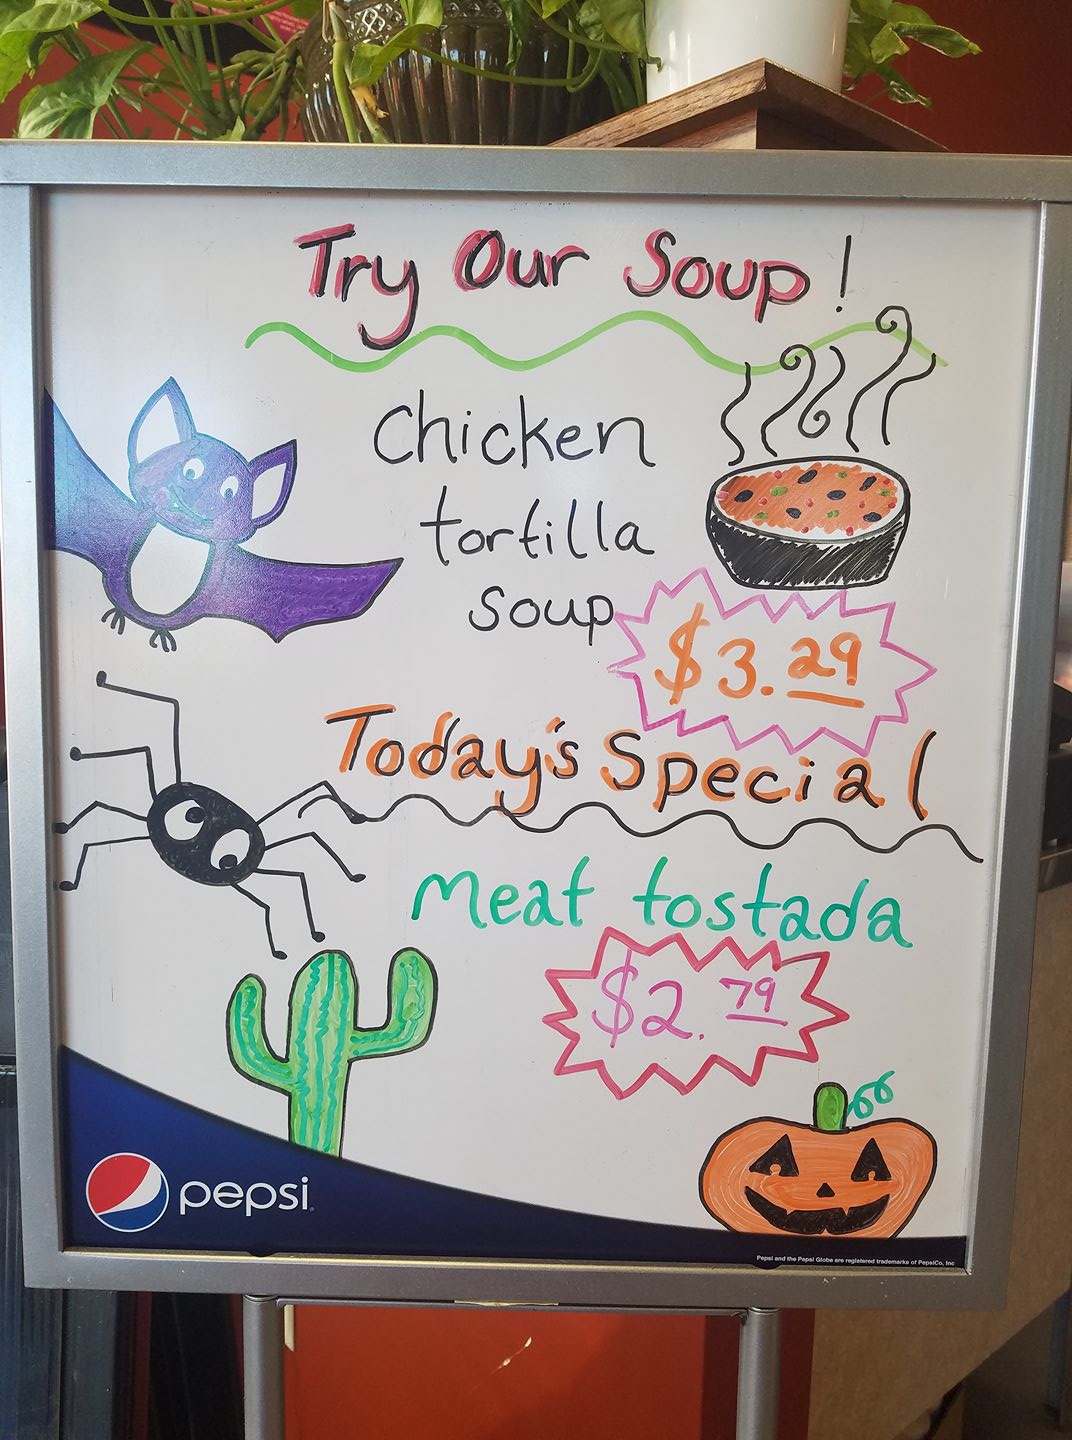 Try Our Soup!
Chicken
tortilla
soup
$3.29
Today's Special
Meat tostada
$2.79
pepsi
Pepsi and the Pepsi Globe are registered trademarks of PepsiCo, Inc